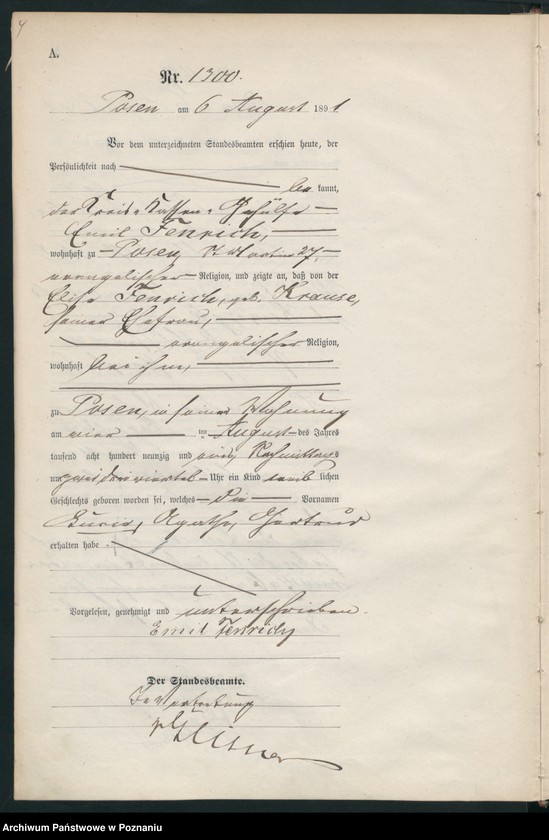 4
A.
Nr. 1300.
Posen am 6 August 1891
Vor dem unterzeichneten Standesbeamten erschien heute, der
Persönlichkeit nach
be kannt,
der Kreis-Kassen-Gehülfe
Emil Fenrich,
wohnhaft zu Posen, St Martin 27,
evangelischer Religion, und zeigte an, daß von der
Elise Fenrich, geb. Krause,
seiner Ehefrau,
evangelischer Religion,
wohnhaft bei ihm,
zu Posen, in seiner Wohnung
am vier ten August des Jahres
tausend acht hundert neunzig und eins, Nachmittags
um zwei drei viertel Uhr ein Kind weib lichen
Geschlechts geboren worden sei, welches die Vornamen
Agathe, Gertrud
erhalten habe.
Vorgelesen, genehmigt und unterschrieben.
Emil Fenrich
Der Standesbeamte.
In Vertretung
Archiwum Państwowe w Poznaniu